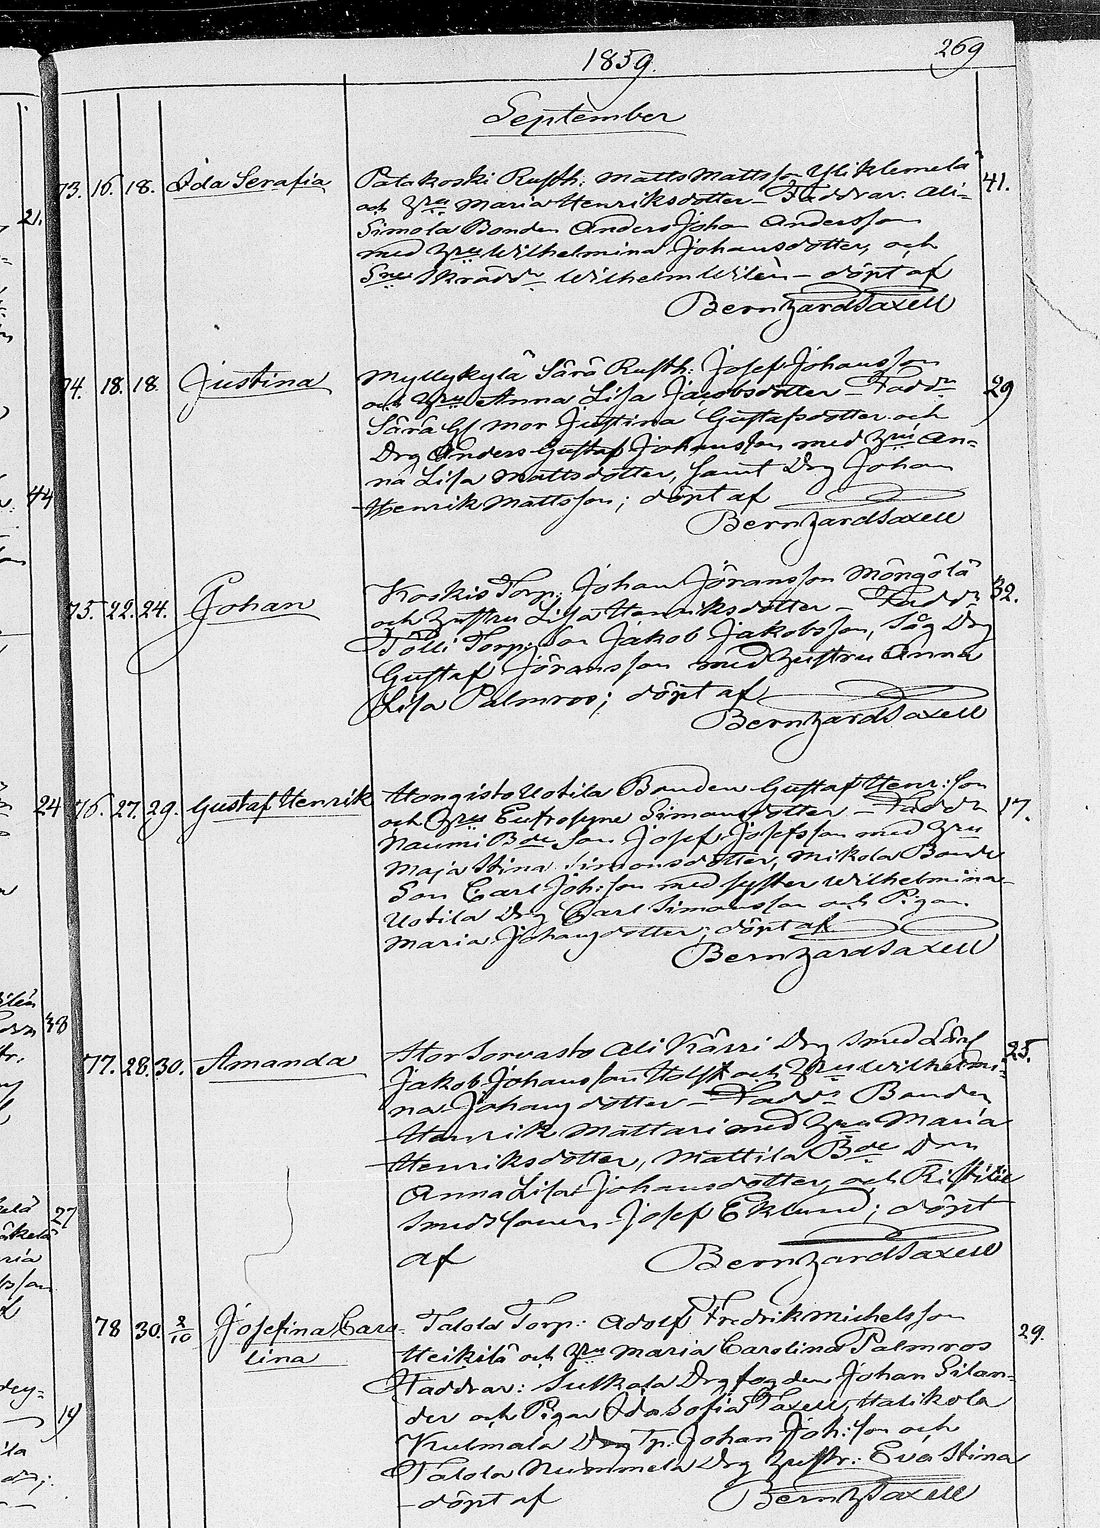 1859.
269
September
73. 16. 18. Ida Serafia
Palakoski Rusth: Matts Mattsson Yliklemelä 41.
och Hru Maria Henriksdotter – Faddrar: Ali-
Simola Bonden Anders Johan Andersson
med Hru Wilhelmina Johansdotter, och
Skrädd Wilhelm Wilén – döpt af
Bernhard Taxell
74. 18. 18. Justina
Myllykylä Särä Rusth: Josef Johansson 29
och Hru Anna Lisa Jacobsdotter – Faddr
Särä Gl mor Justina Gustafsdotter och
Drg Anders Gustaf Johansson med Hru An-
na Lisa Mattsdotter, samt Drg Johan
Henrik Mattsson; döpt af
Bernhard Taxell
75. 22. 24. Johan
Koskis Torp: Johan Jöransson Möngölä 32.
och Hustru Lisa Henriksdotter – Faddr
Tölli Torp: Son Jakob Jakobsson, Såg Drg
Gustaf Jöransson med Hustru Anna
Lisa Palmros; döpt af
Bernhard Taxell
76. 27. 29. Gustaf Henrik
Hongisto Uotila Bonden Gustaf Henr:son 17.
och Hru Eufrosyne Simonsdotter – Faddr
Naumi Bde Son Josef Josefsson med Hru
Maja Stina Simonsdotter, Mikola Bonde
Son Carl Joh:son med syster Wilhelmina
Uotila Drg Carl Simonsson och Pigan
Maria Johansdotter; döpt af
Bernhard Taxell
77. 28. 30. Amanda
Stor Sorvasto Ali Kärri Drg Smed Lärl 25.
Jakob Johansson Holst och Hru Wilhelmi-
na Johansdotter – Faddr Bonden
Henrik Mattari med Hru Maria
Henriksdotter, Mattila Bde Dotr
Anna Lisa Johansdotter, och Ristilä
Smedssonen Josef Eklund; döpt
af Bernhard Taxell
78 30. 2/10 Josefina Caro-
lina
Talola Torp: Adolf Fredrik Michelsson 29.
Heikilä och Hru Maria Carolina Palmros
Faddrar: Suskala Drgfogden Johan Silan-
der och Pigan Ida Sofia Taxell, Halikola
Kulmala Drg Tp: Johan Joh:son och
Talola Nummela Drg Hustr: Eva Stina
– döpt af Bernh Taxell
21.
44
24
38
27
19